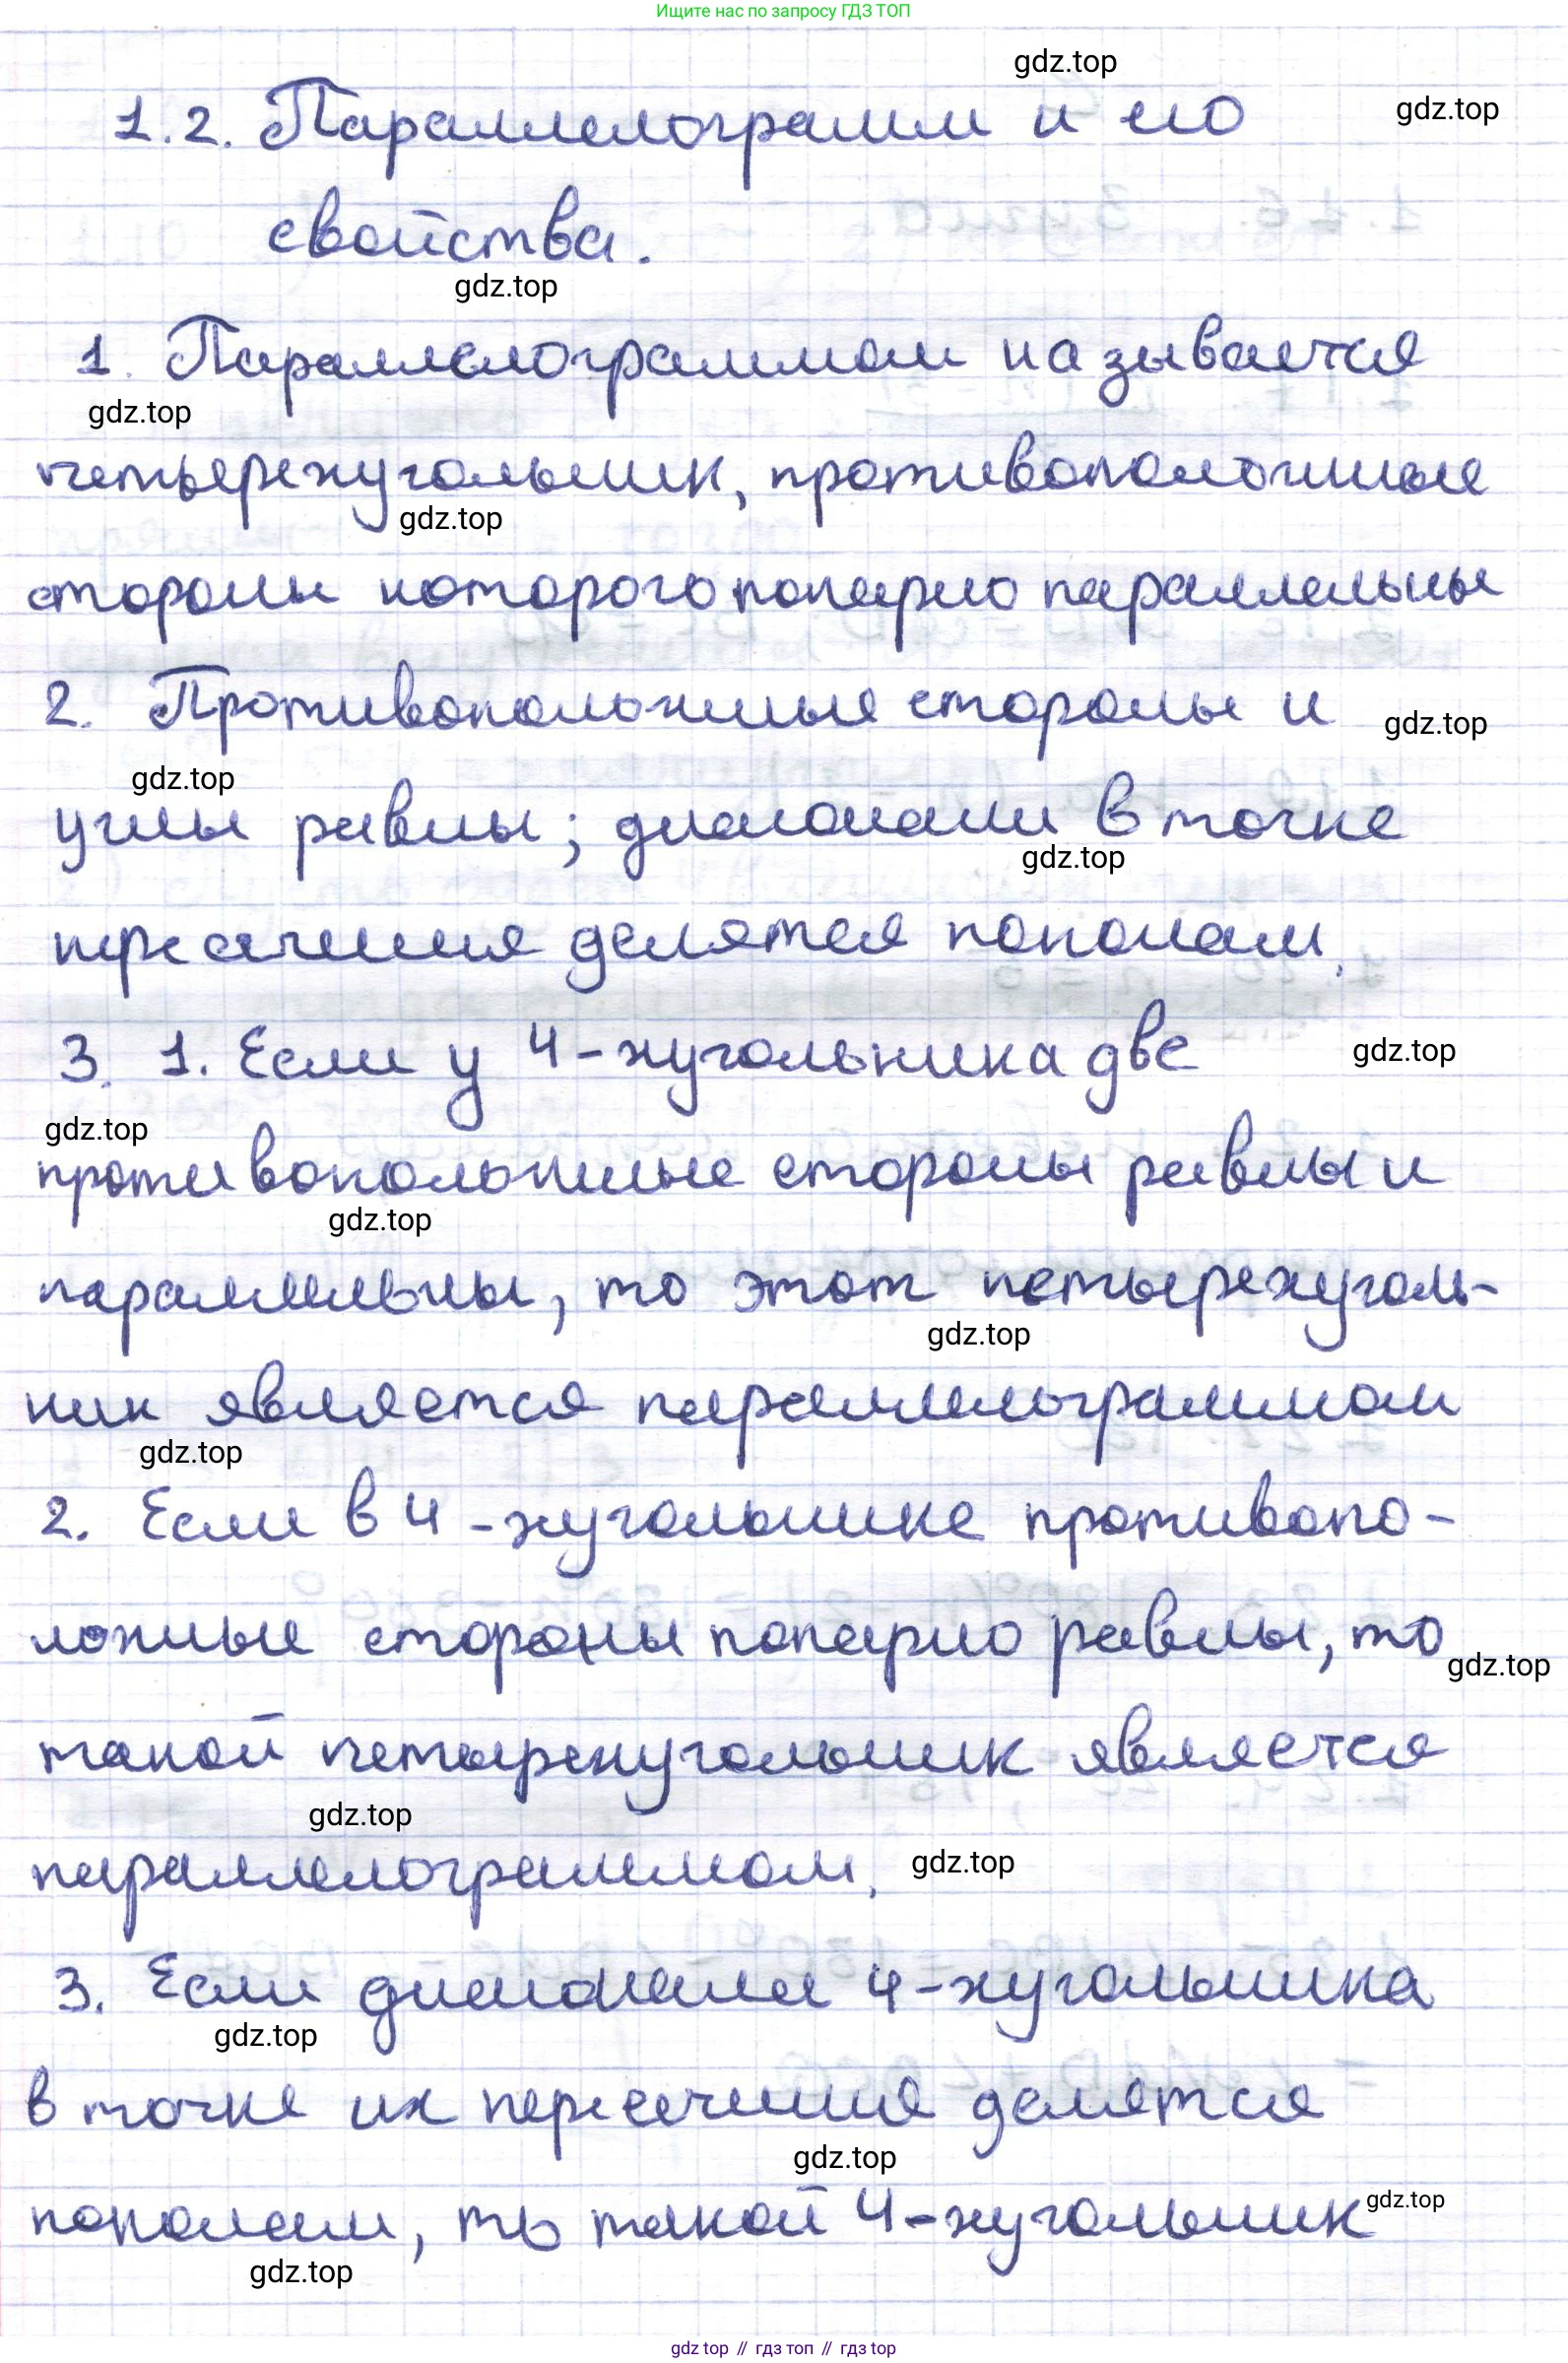 Ищите нас по запросу ГДЗ ТОП
gdz.top
1.2. Параллелограмм и его
gdz.top
свойства.
gdz.top
1. Параллелограммом называется
gdz.top
четырехугольник, противоположные
gdz.top
стороны которого попарно параллельны
2. Противоположные стороны и
gdz.top
gdz.top
углы равны; диагонали в точке
gdz.top
пересечения делятся пополам.
3. 1. Если у 4-хугольника две
gdz.top
gdz.top
противоположные стороны равны и
gdz.top
параллельны, то этот четырехуголь-
gdz.top
ник является параллелограммом
gdz.top
2. Если в 4-хугольнике противопо-
ложные стороны попарно равны, то
gdz.top
такой четырехугольник является
gdz.top
параллелограммом.
gdz.top
3. Если диагонали 4-хугольника
gdz.top
в точке их пересечения делятся
gdz.top
пополам, то такой 4-хугольник
gdz.top
gdz.top
gdz top // гдз топ // гдз top